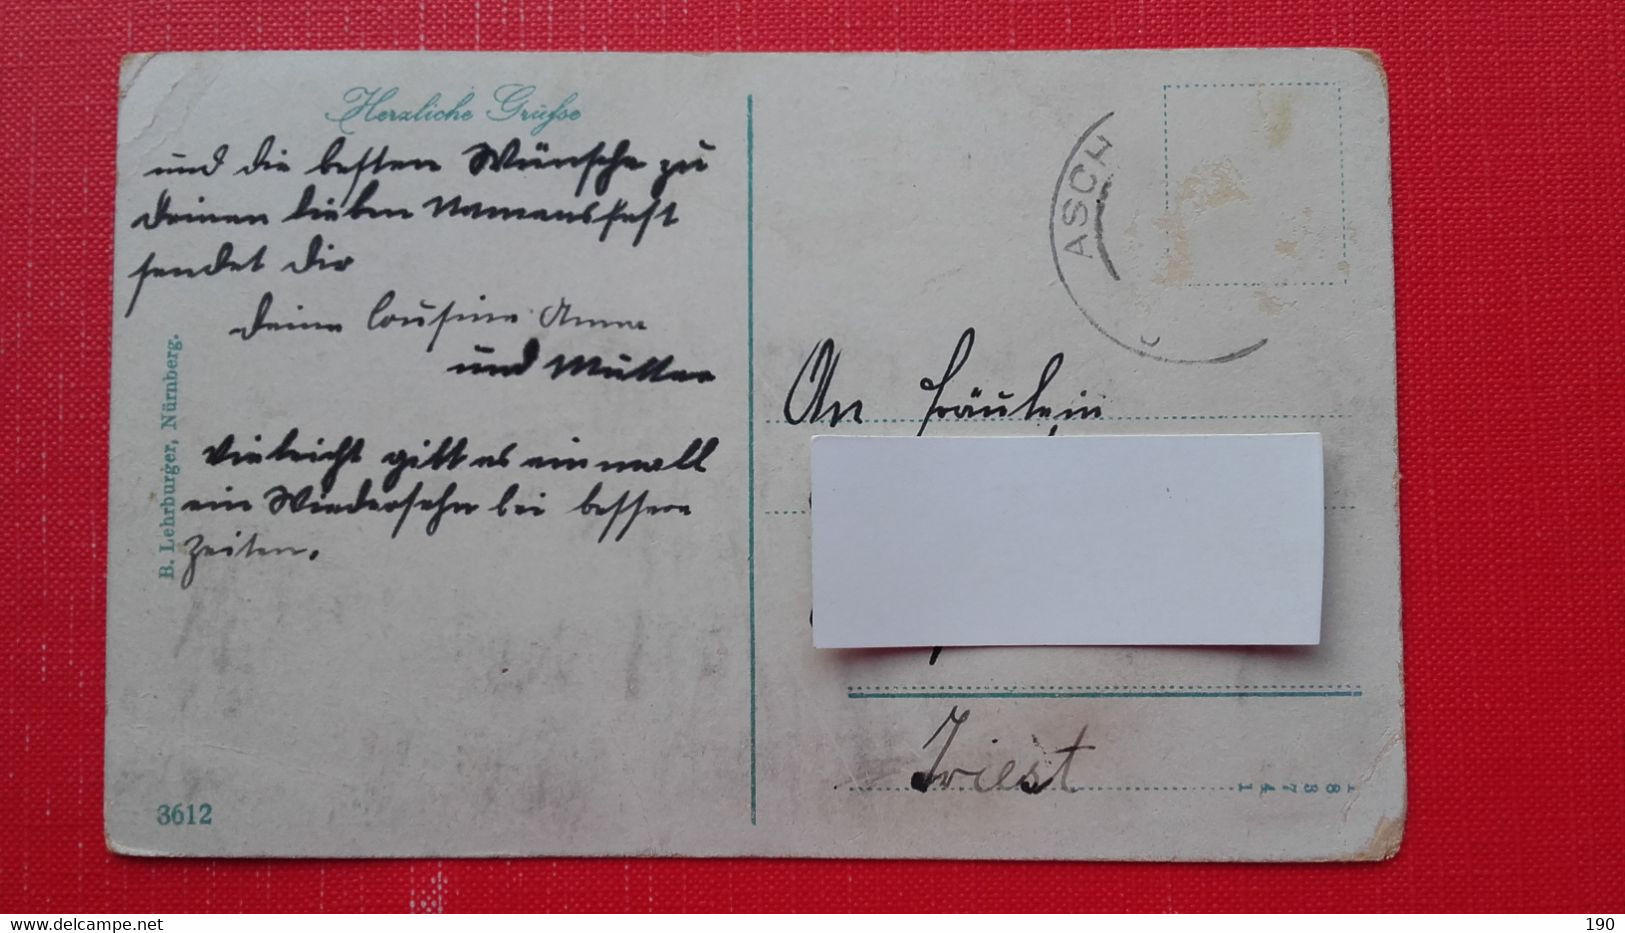 Herzliche Grüsse
und die besten Wünsche zu
deinen lieben Namensfest
sendet dir
deine Cousine Anna
und Mutter
Vieleicht gibt es einmall
ein Wiedersehn bei bessere
Zeiten.
B. Lehrburger, Nürnberg.
3612
ASCH
An Fräulein
Triest
18371
delcampe.net
190